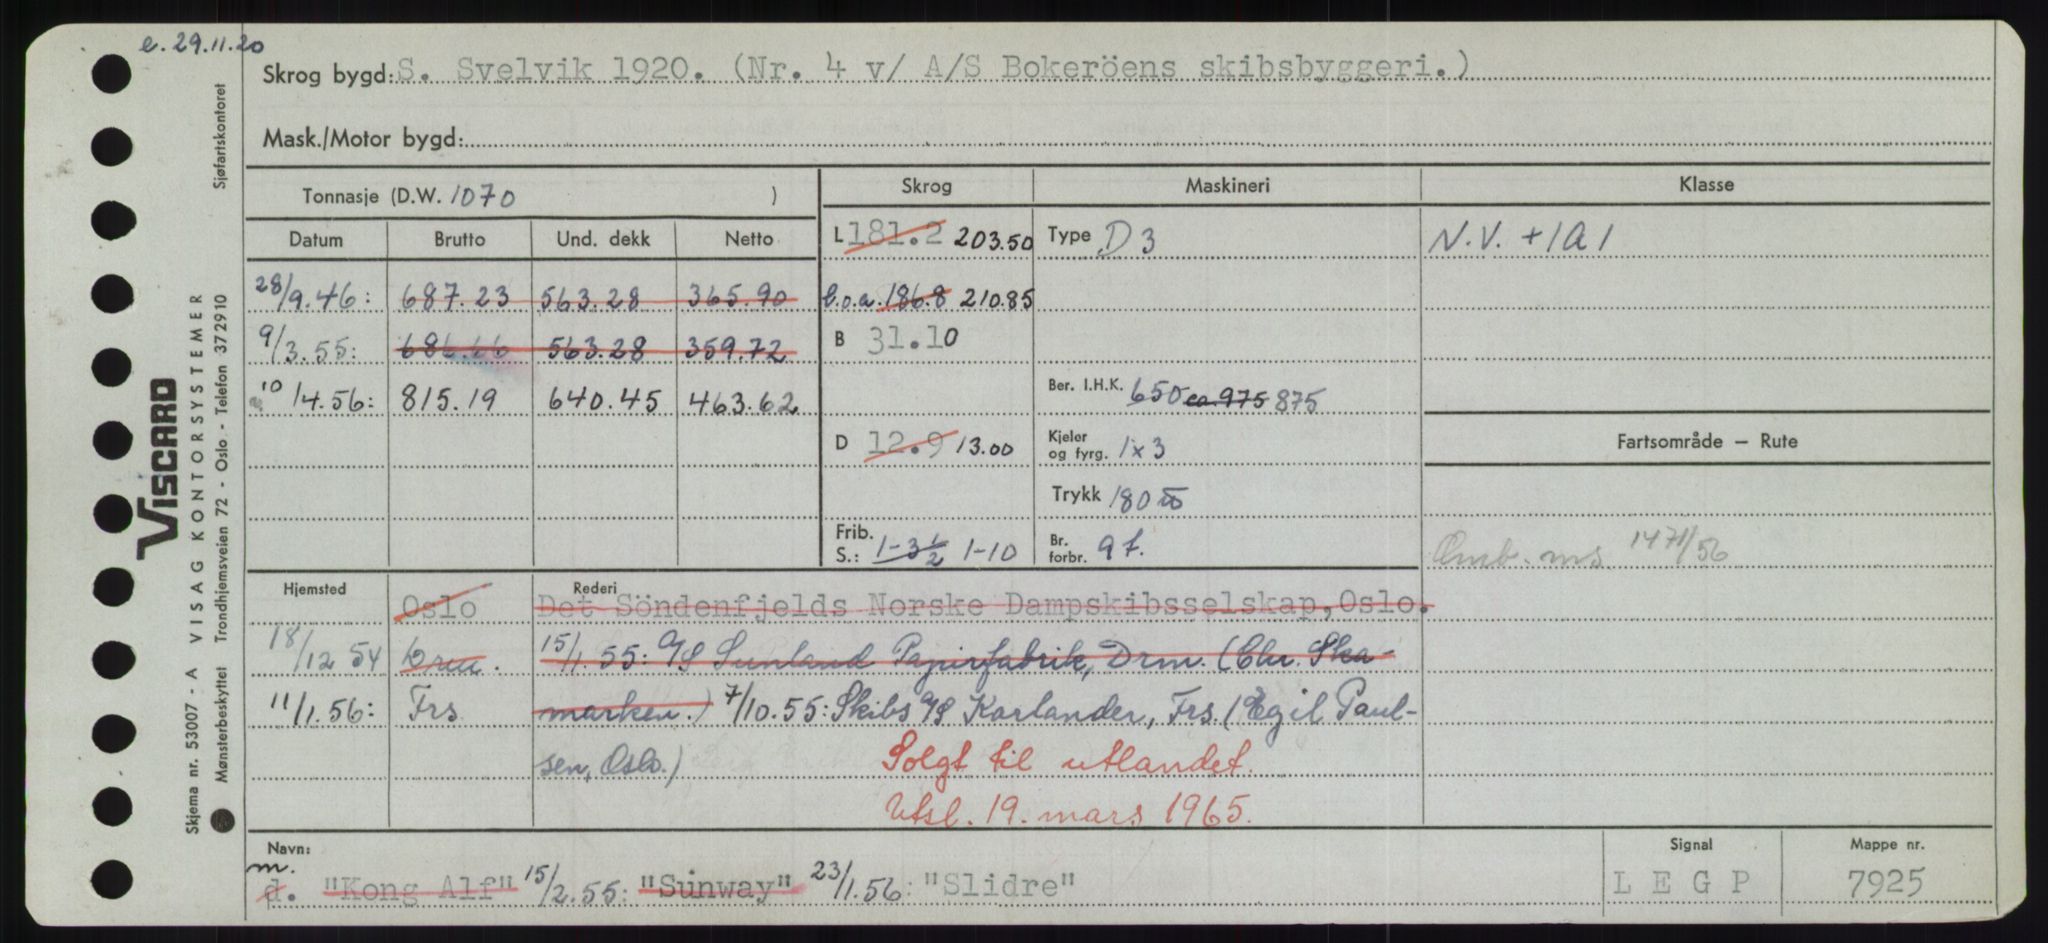 e. 29.11.20
Skrog bygd: S. Svelvik 1920. (Nr. 4 v/ A/S Bokeröens skibsbyggeri.)
Mask./Motor bygd:
Tonnasje (D.W. 1070 )
Skrog
Maskineri
Klasse
Datum Brutto Und. dekk Netto
28/9.46: 687.23 563.28 365.90
9/3.55: 563.28 359.72
10/4.56: 815.19 640.45 463.62
L 181.2 203.50
l.o.a. 186.8 210.85
B 31.10
D 12.9 13.00
Frib.
S.: 1-3½ 1-10
Type D 3
Ber. I.H.K. 650 ca. 975 875
Kjeler
og fyrg. 1x3
Trykk 180
Br.
forbr. 9 t.
N.V. +1A1
Fartsområde – Rute
Omb. ms 1471/56
Hjemsted
Rederi
Oslo Det Söndenfjelds Norske Dampskibsselskap, Oslo.
18/12 54 Drm. 15/1.55: A/S Sunland Papirfabrik, Drm. (Chr. Ska-
11/1.56: Frs marken.) 7/10.55: Skibs A/S Karlander, Frs. (Egil Paul-
sen, Oslo.) Solgt til utlandet.
Utsl. 19. mars 1965.
Navn:
m.
d. "Kong Alf" 15/2.55: "Sunway" 23/1.56: "Slidre"
Signal
L E G P
Mappe nr.
7925
VISCARD
Skjema nr. 53007 - A VISAG KONTORSYSTEMER
Mønsterbeskyttet Trondhjemsveien 72 - Oslo - Telefon 372910 Sjøfartskontoret